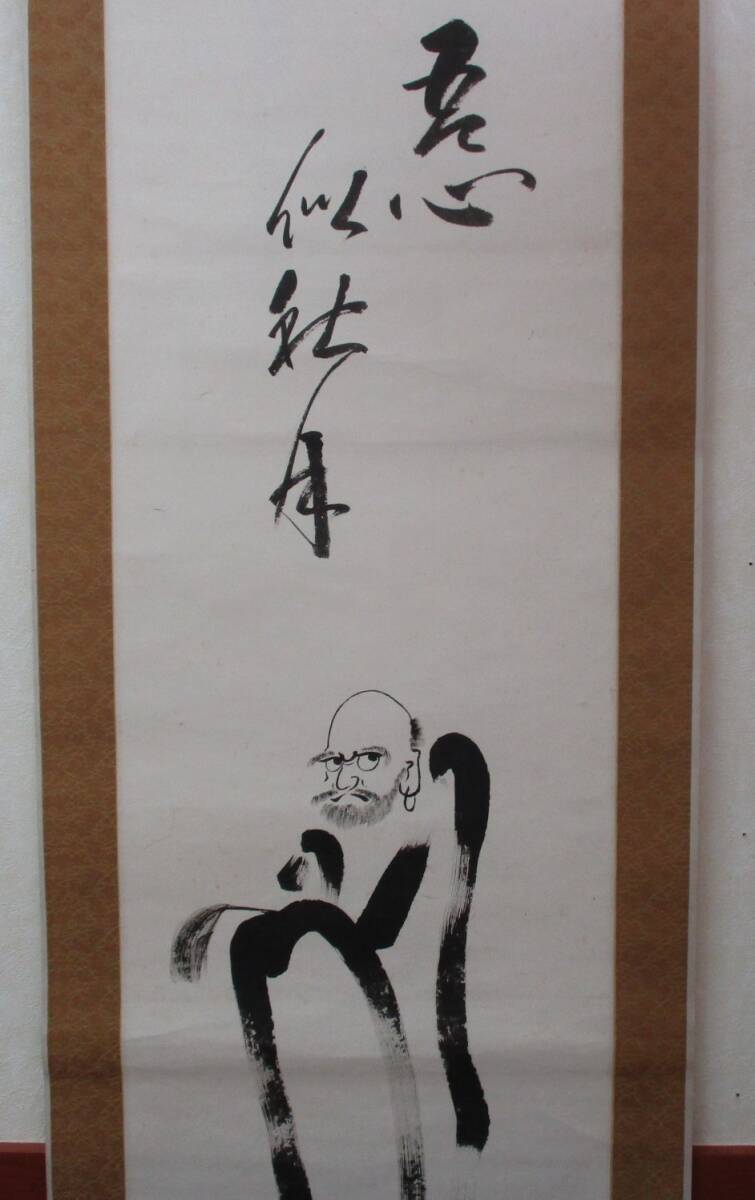 吾心
似秋月